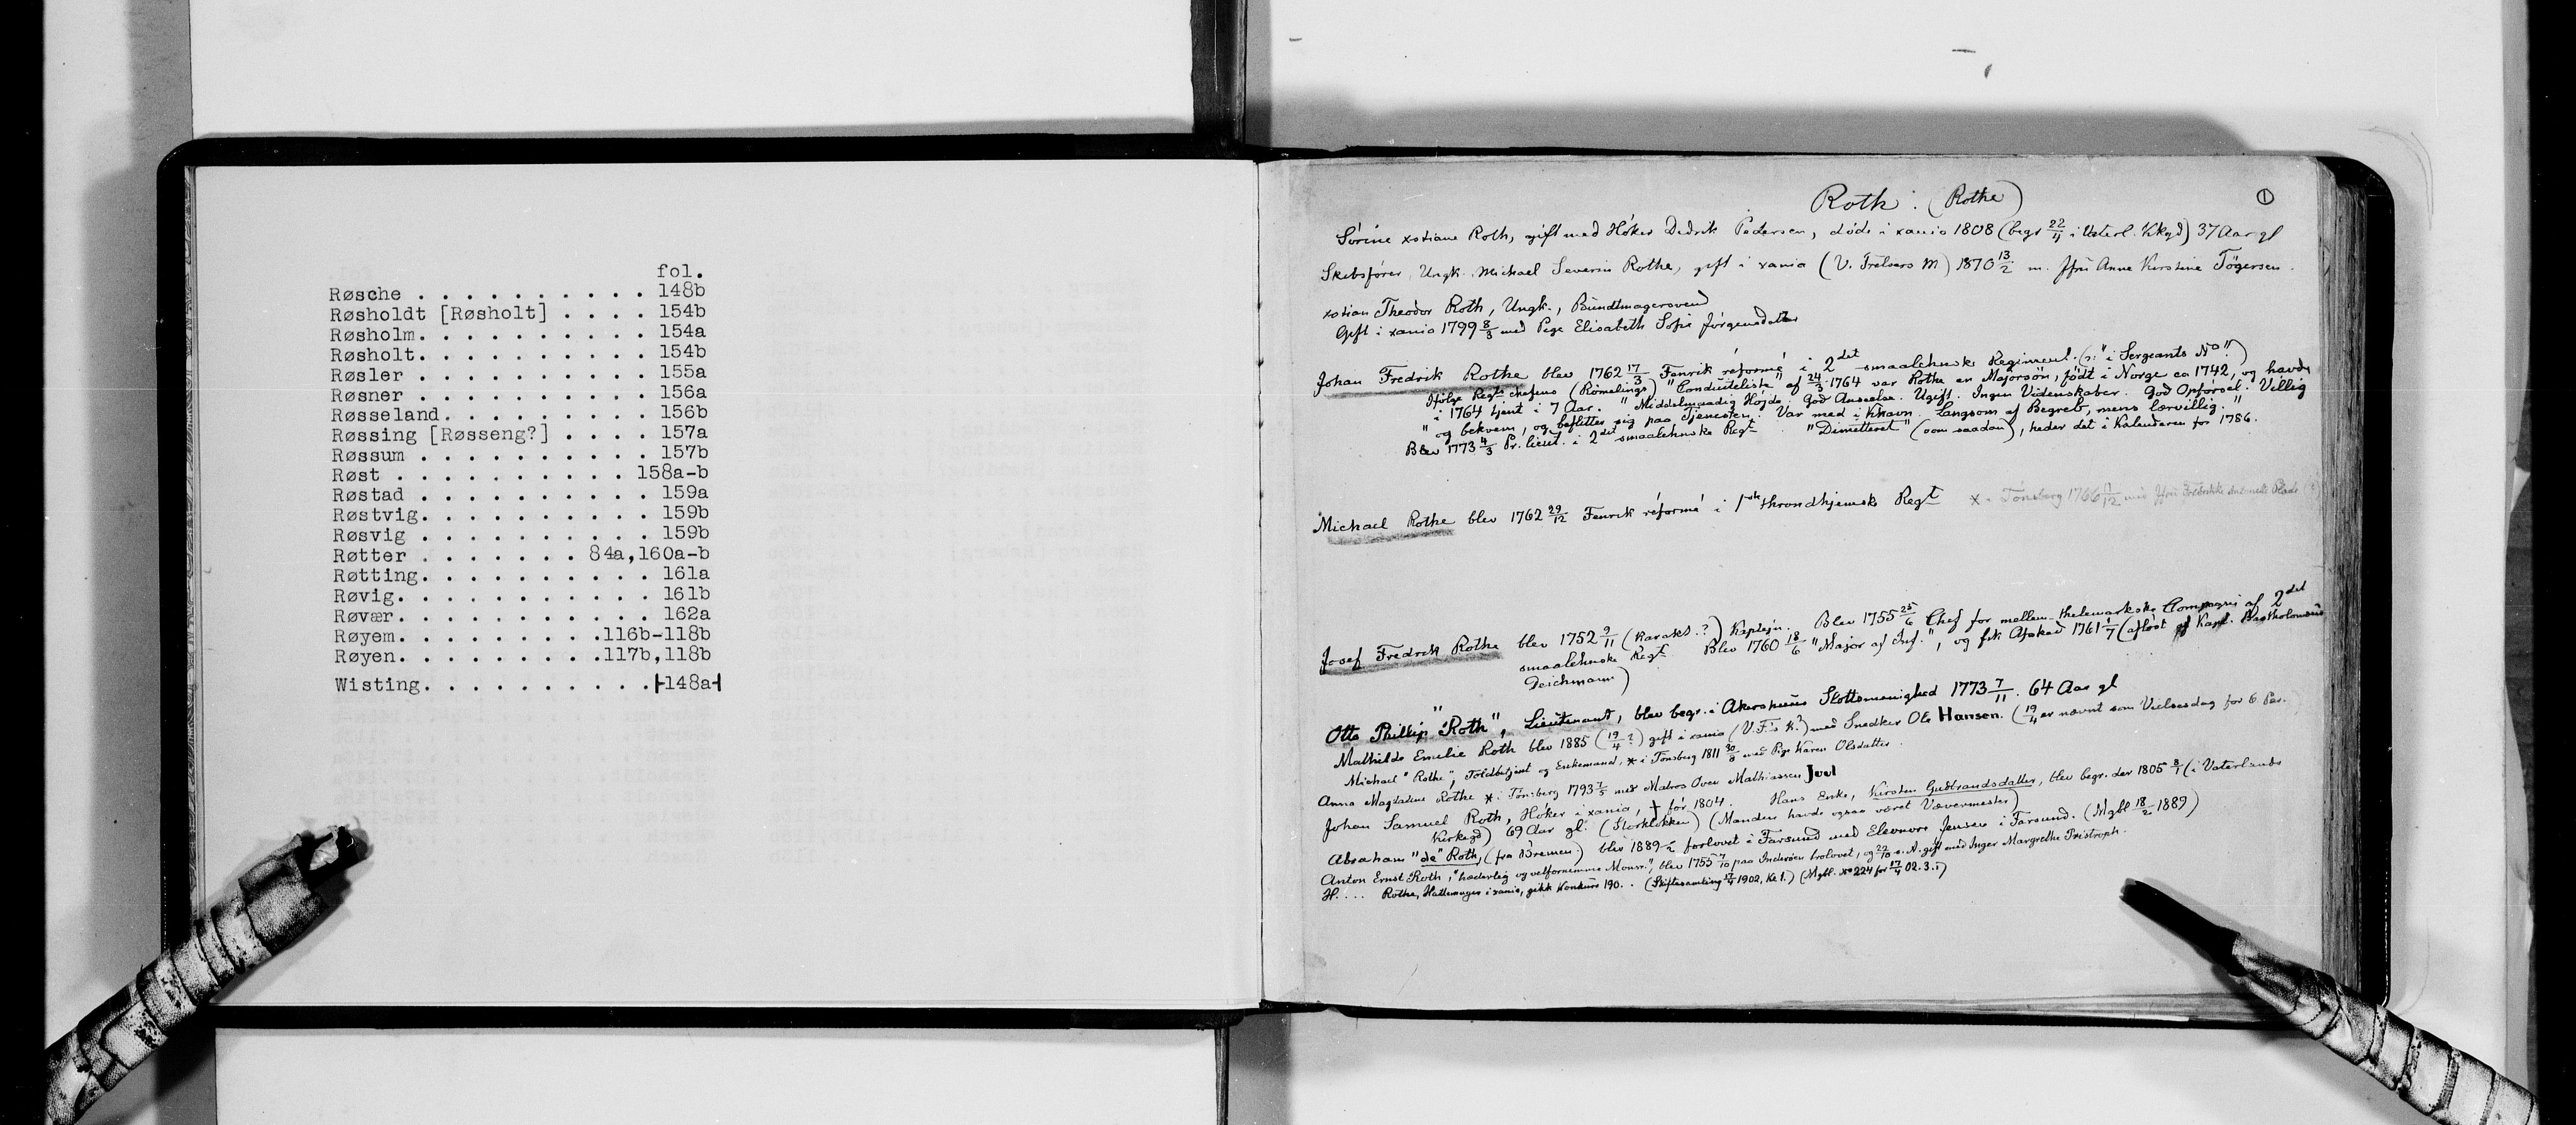 fol.
Røsche . . . . . . . . . . 148b
Røsholdt [Røsholt] . . . . 154b
Røsholm. . . . . . . . . . 154a
Røsholt. . . . . . . . . . 154b
Røsler . . . . . . . . . . 155a
Røsner . . . . . . . . . . 156a
Røsseland. . . . . . . . . 156b
Røssing [Røsseng?] . . . . 157a
Røssum . . . . . . . . . . 157b
Røst . . . . . . . . . . 158a-b
Røstad . . . . . . . . . . 159a
Røstvig. . . . . . . . . . 159b
Røsvig . . . . . . . . . . 159b
Røtter . . . . . . . 84a,160a-b
Røtting. . . . . . . . . . 161a
Røvig. . . . . . . . . . . 161b
Røvær. . . . . . . . . . . 162a
Røyem. . . . . . . . .116b-118b
Røyen. . . . . . . . .117b,118b
Wisting. . . . . . . . . .[-148a-]
Roth. (Rothe) 1
Sørine xstiane Roth, gift med Høker Didrik Pedersen, døde i xania 1808 (begr 22/11 i Vaterl. Kkgd) 37 Aar gl
Skibsfører, Ungk. Michael Severin Rothe, gift i xania (V. Frelsers M) 1870 13/2 m. Jfru Anne Kirstine Tøgersen.
xstian Theodor Roth, Ungk., Bundtmagersvend
Gift i xania 1799 8/3 med Pige Elisabeth Sofie Jørgensdatter
Johan Fredrik Rothe blev 1762 17/3 Fenrik réformé i 2det smaalehnske Regiment. (ɔ: "i Sergeants No")
Ifølge Regts chefens (Römelings) "Conduiteliste" af 24/3 1764 var Rothe en Majorsøn, født i Norge ca 1742, og havde
i 1764 tjent i 7 Aar. "Middelmaadig Høide. God Anseelse. Ugift. Ingen Videnskaber. God Opførsel. Villig
" og bekvem, og beflitter sig paa Tjenesten. Var med i Khavn. Langsom af Begreb, mens lærvillig."
Blev 1773 4/3 Pr. lieut. i 2det smaalehnske Regt. "Dimitteret" (som saadan), heder det i Kalenderen for 1786.
Michael Rothe blev 1762 29/12 Fenrik réformé i 1ste throndhjemsk Regt x i Tønsberg 1766 11/12 med Jfru
Josef Fredrik Rothe blev 1752 9/11 (karakt.?) Kaptejn. Blev 1755 25/6 Chef for mellem-thelemarkske Kompagni af 2det
smaalehnske Regt. Blev 1760 18/6 "Major af Inf.", og fik Afsked 1761 1/7 (afløst af Kapt. Bartholomæus
Deichmann)
Otto Phillip "Roth", Lieutenant, blev begr. i Akershuus Slottsmenighed 1773 7/11. 64 Aar gl
Mathilde Emelie Roth blev 1885 (19/4?) gift i xania (V.F.'s K?) med Snedker Ole Hansen. (19/4 er nævnt som Vielsesdag for 6 Par.
Michael "Rothe", Toldbetjent og Enkemand, x i Tønsberg 1811 30/8 med Pige Karen Olsdatter.
Anna Magdalene Rothe x i Tønsberg 1793 7/5 med Matros Over Mathiassen Juul
Johan Samuel Roth, Høker i xania, † før 1804. Hans Enke, Kirsten Gudbrandsdatter, blev begr. der 1805 8/1 (i Vaterlands
Kirkegd) 69 Aar gl. (Storklokken) (Manden havde ogsaa været Vævermester)
Abraham "de" Roth, (fra Bremen) blev 1889 forlovet i Farsund med Eleonore Jensen i Farsund. (Mgbl 18/2 1889)
Anton Ernst Roth, "hæderlig og velfornemme Monsr.", blev 1755 7/10 paa Inderøen trolovet, og 22/10 s. A. gift med Inger Margrethe Pristroph.
H. . . . Rothe, Hattemager i xania, gikk Konkurs 190. . (Skiftesamling 17/4 1902, Kl 1.) (Mgbl. No 224 for 17/4 02. 3. s)